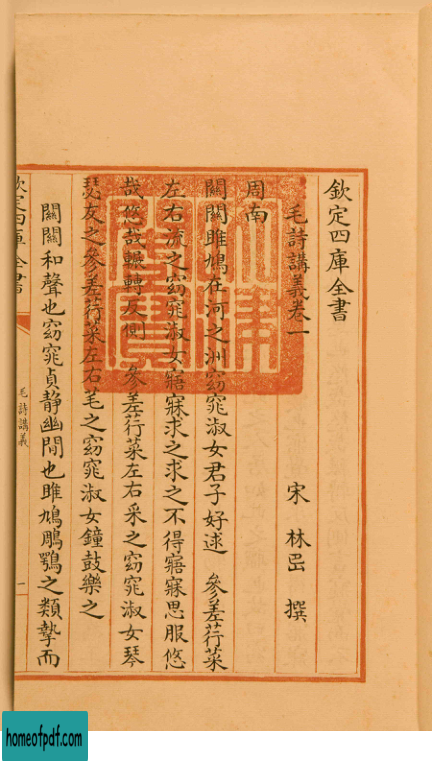 欽定四庫全書
毛詩講義卷一
宋 林岊 撰
周南
關關雎鳩在河之洲窈窕淑女君子好逑 參差荇菜
左右流之窈窕淑女寤寐求之求之不得寤寐思服悠
哉悠哉輾轉反側 參差荇菜左右采之窈窕淑女琴
瑟友之參差荇菜左右芼之窈窕淑女鐘鼓樂之
關關和聲也窈窕貞静幽閒也雎鳩鵰鶚之類摯而
欽定四庫全書
毛詩講義
一
homeofpdf.com